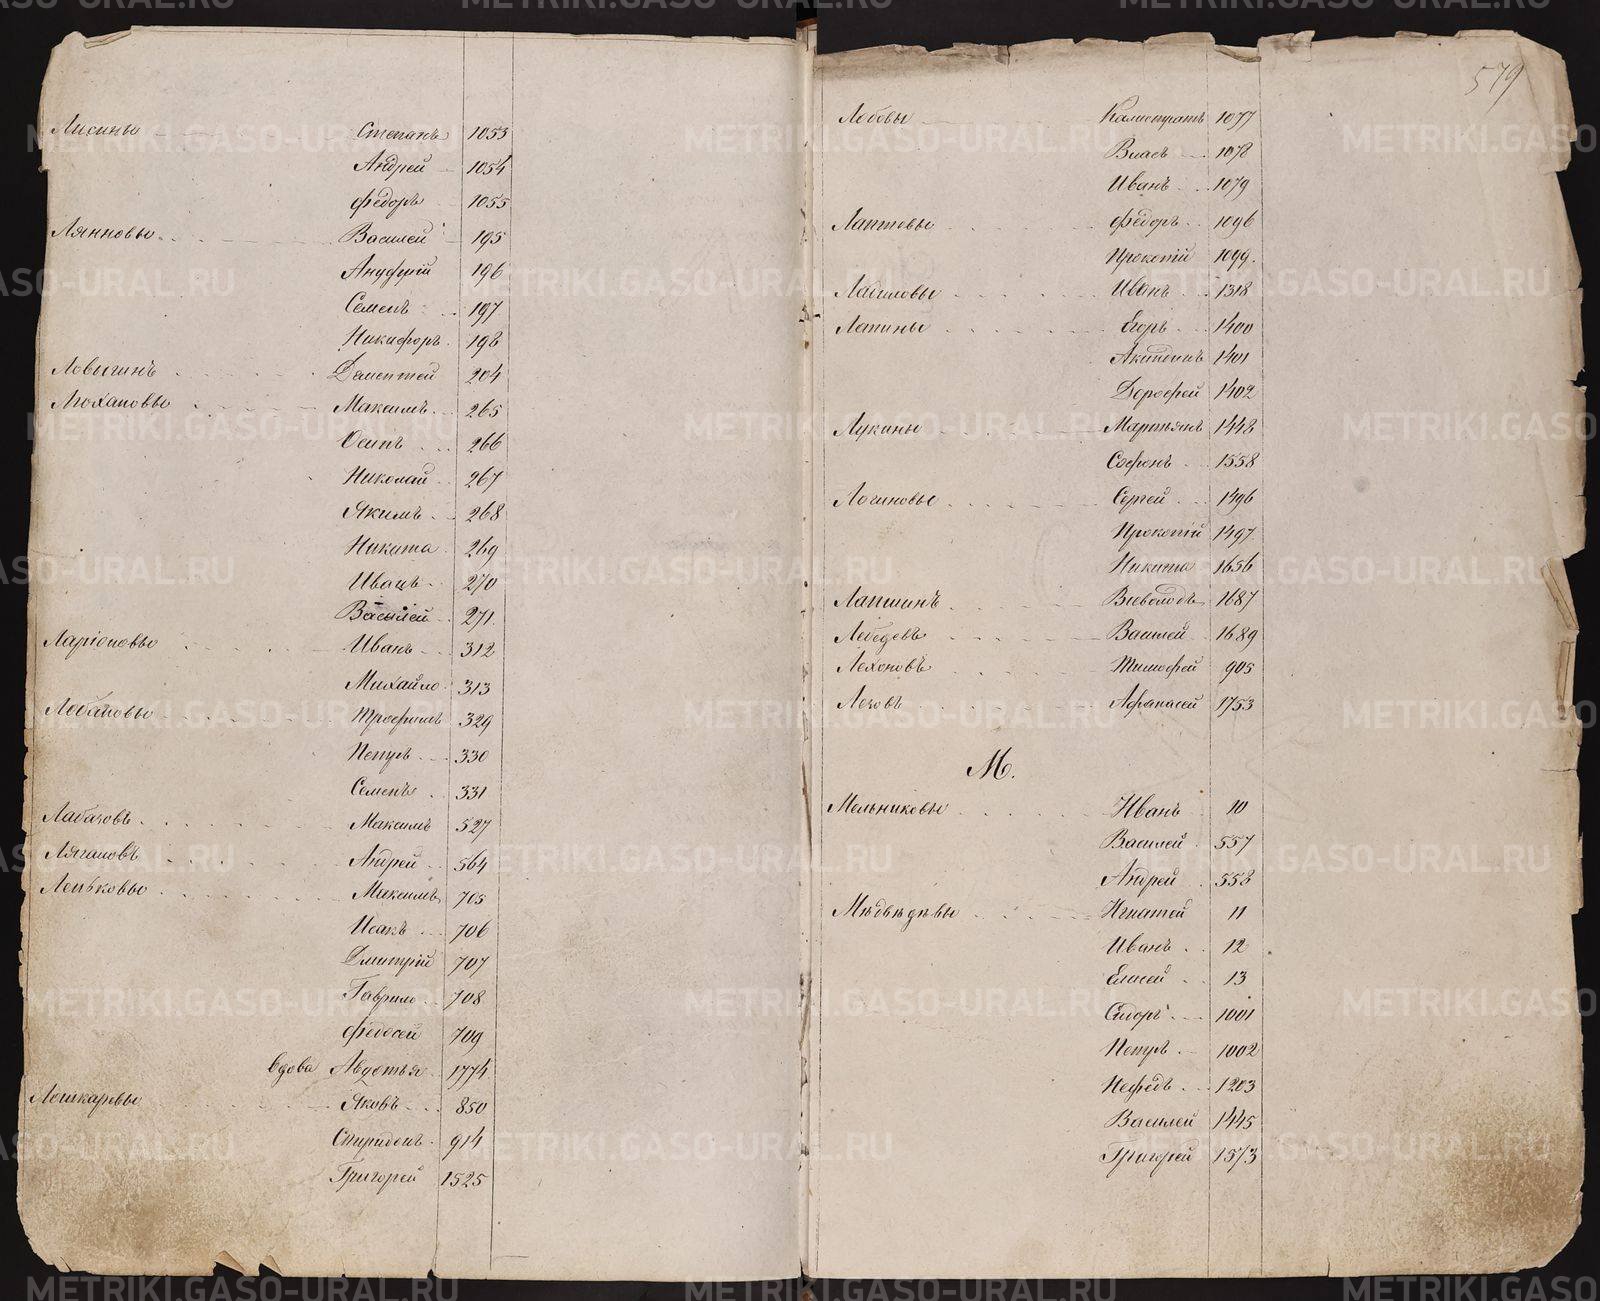 Лисины Степанъ 1053
Андрей 1054
Ѳедоръ 1055
Лянновы Василей 195
Ануфрій 196
Семенъ 197
Никифоръ 198
Ловыгинъ Дементей 204
Лохановы Максимъ 265
Осипъ 266
Николай 267
Якимъ 268
Никита 269
Иванъ 270
Василей 271
Ларіоновы Иванъ 312
Михайло 313
Лобановы Трофимъ 329
Петръ 330
Семенъ 331
Лабазовъ Максимъ 527
Лягановъ Андрей 564
Леньковы Максимъ 705
Исакъ 706
Дмитрій 707
Гаврило 708
Федосей 709
вдова Авдотья 1774
Лошкаревы Яковъ 850
Спиридонъ 914
Григорей 1525
579
Лобовы Калистратъ 1077
Власъ 1078
Иванъ 1079
Лаптевы Федоръ 1096
Прокопій 1099
Иванъ 1318
Лапины Егоръ 1400
Акиндинъ 1401
Дорофей 1402
Лукины Мартьянъ 1448
Софонъ 1558
Логиновы Сергей 1496
Прокопій 1497
Никита 1656
Лапшинъ Всеволодъ 1687
Лебедевъ Василей 1689
Лехоновъ Тимофей 905
Лезовъ Афанасей 1753
М.
Мельниковы Иванъ 10
Василей 557
Андрей 558
Мѣдвѣдѣвы Игнатей 11
Иванъ 12
Елисей 13
Сидоръ 1001
Петръ 1002
Нефедъ 1203
Василей 1445
Григорей 1573
METRIKI.GASO-URAL.RU